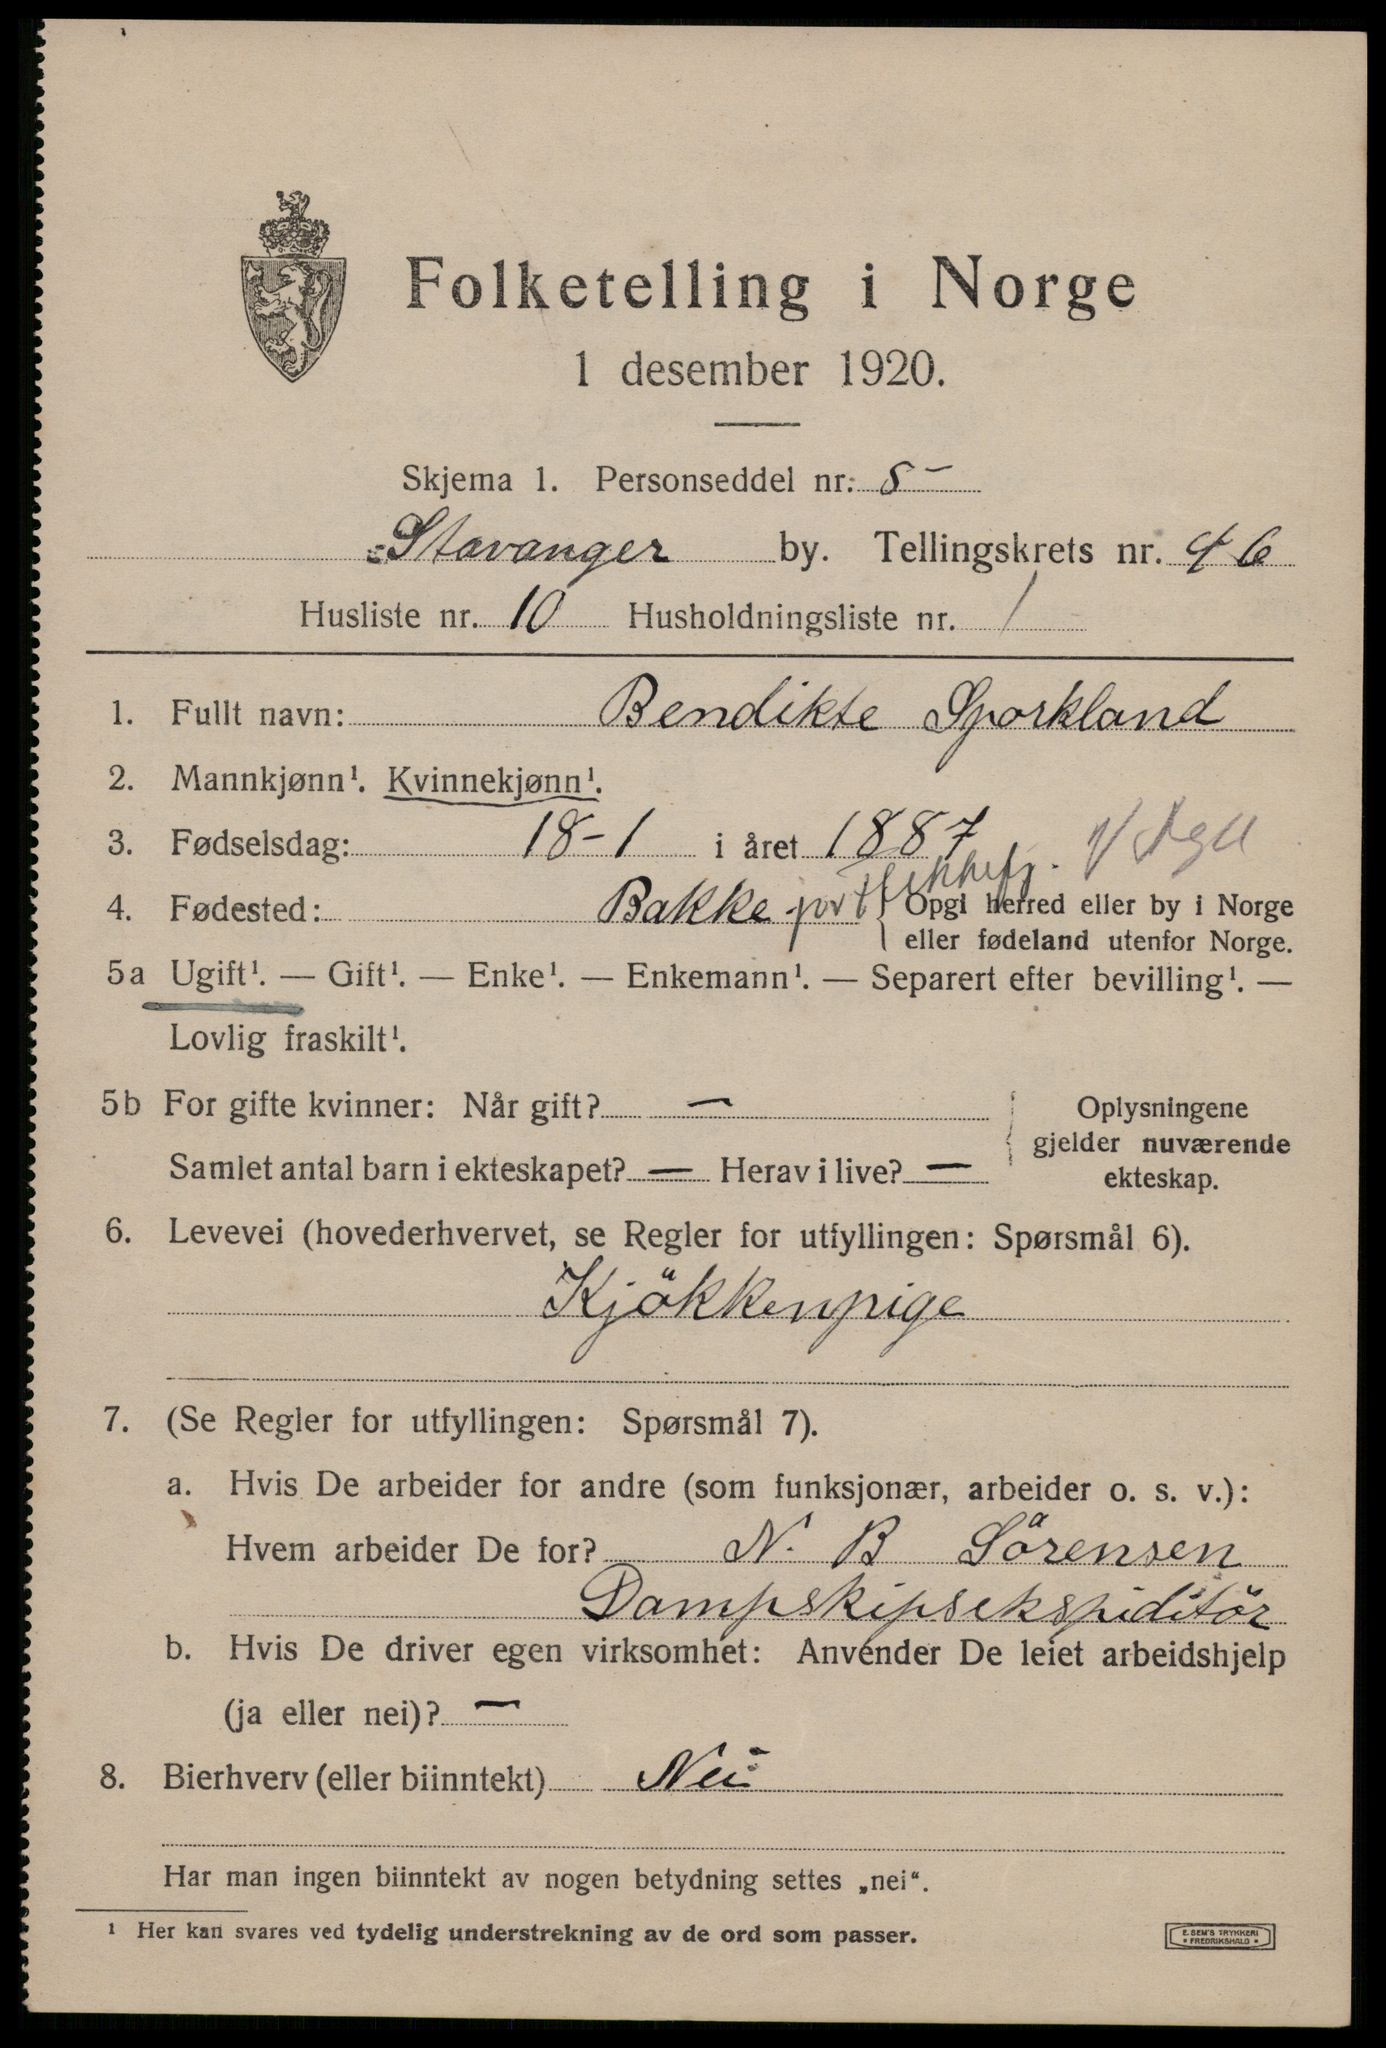 Folketelling i Norge
1 desember 1920.
Skjema 1. Personseddel nr. 5
Stavanger by. Tellingskrets nr. 46
Husliste nr. 10 Husholdningsliste nr. 1
1. Fullt navn: Bendikte Sporkland
2. Mannkjønn¹. Kvinnekjønn¹.
3. Fødselsdag: 18-1 i året 1887
4. Fødested: Bakke { Opgi herred eller by i Norge
eller fødeland utenfor Norge.
5a Ugift¹. — Gift¹. — Enke¹. — Enkemann¹. — Separert efter bevilling¹. —
Lovlig fraskilt¹.
5b For gifte kvinner: Når gift? —
Samlet antal barn i ekteskapet? — Herav i live? —
Oplysningene
gjelder nuværende
ekteskap.
6. Levevei (hovederhvervet, se Regler for utfyllingen: Spørsmål 6).
Kjökkenpige
7. (Se Regler for utfyllingen: Spørsmål 7).
a. Hvis De arbeider for andre (som funksjonær, arbeider o. s. v.):
Hvem arbeider De for? N. B Sörensen
Dampskipsekspiditör
b. Hvis De driver egen virksomhet: Anvender De leiet arbeidshjelp
(ja eller nei)? —
8. Bierhverv (eller biinntekt) Nei
Har man ingen biinntekt av nogen betydning settes „nei“.
¹ Her kan svares ved tydelig understrekning av de ord som passer.
E. SEM'S TRYKKERI
* FREDRIKSHALD *